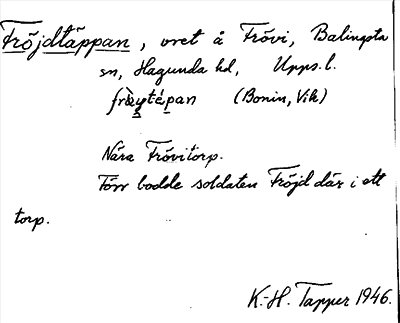 Fröjdtäppan, vret å Frövi, Balingsta
sn, Hagunda hd, Upps. l.
(Bonin, Vik)
Nära Frövitorp.
Förr bodde soldaten Fröjd där i ett
torp.
K.-H. Tapper 1946.